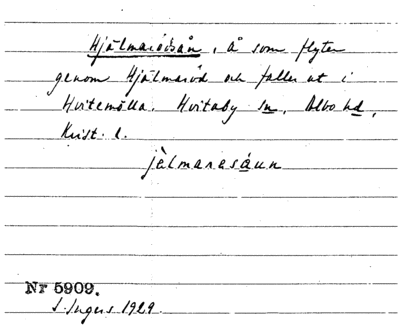 Hjälmarödsån, å som flyter
genom Hjälmaröd och faller ut i
Hvitemölla. Hvitaby sn, Albo hd,
Krist. l.
jàlmarasáun
Nr 5909.
I. Ingers 1929.